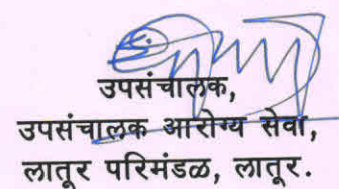 उपसंचालक,
उपसंचालक आरोग्य सेवा,
लातूर परिमंडळ, लातूर.